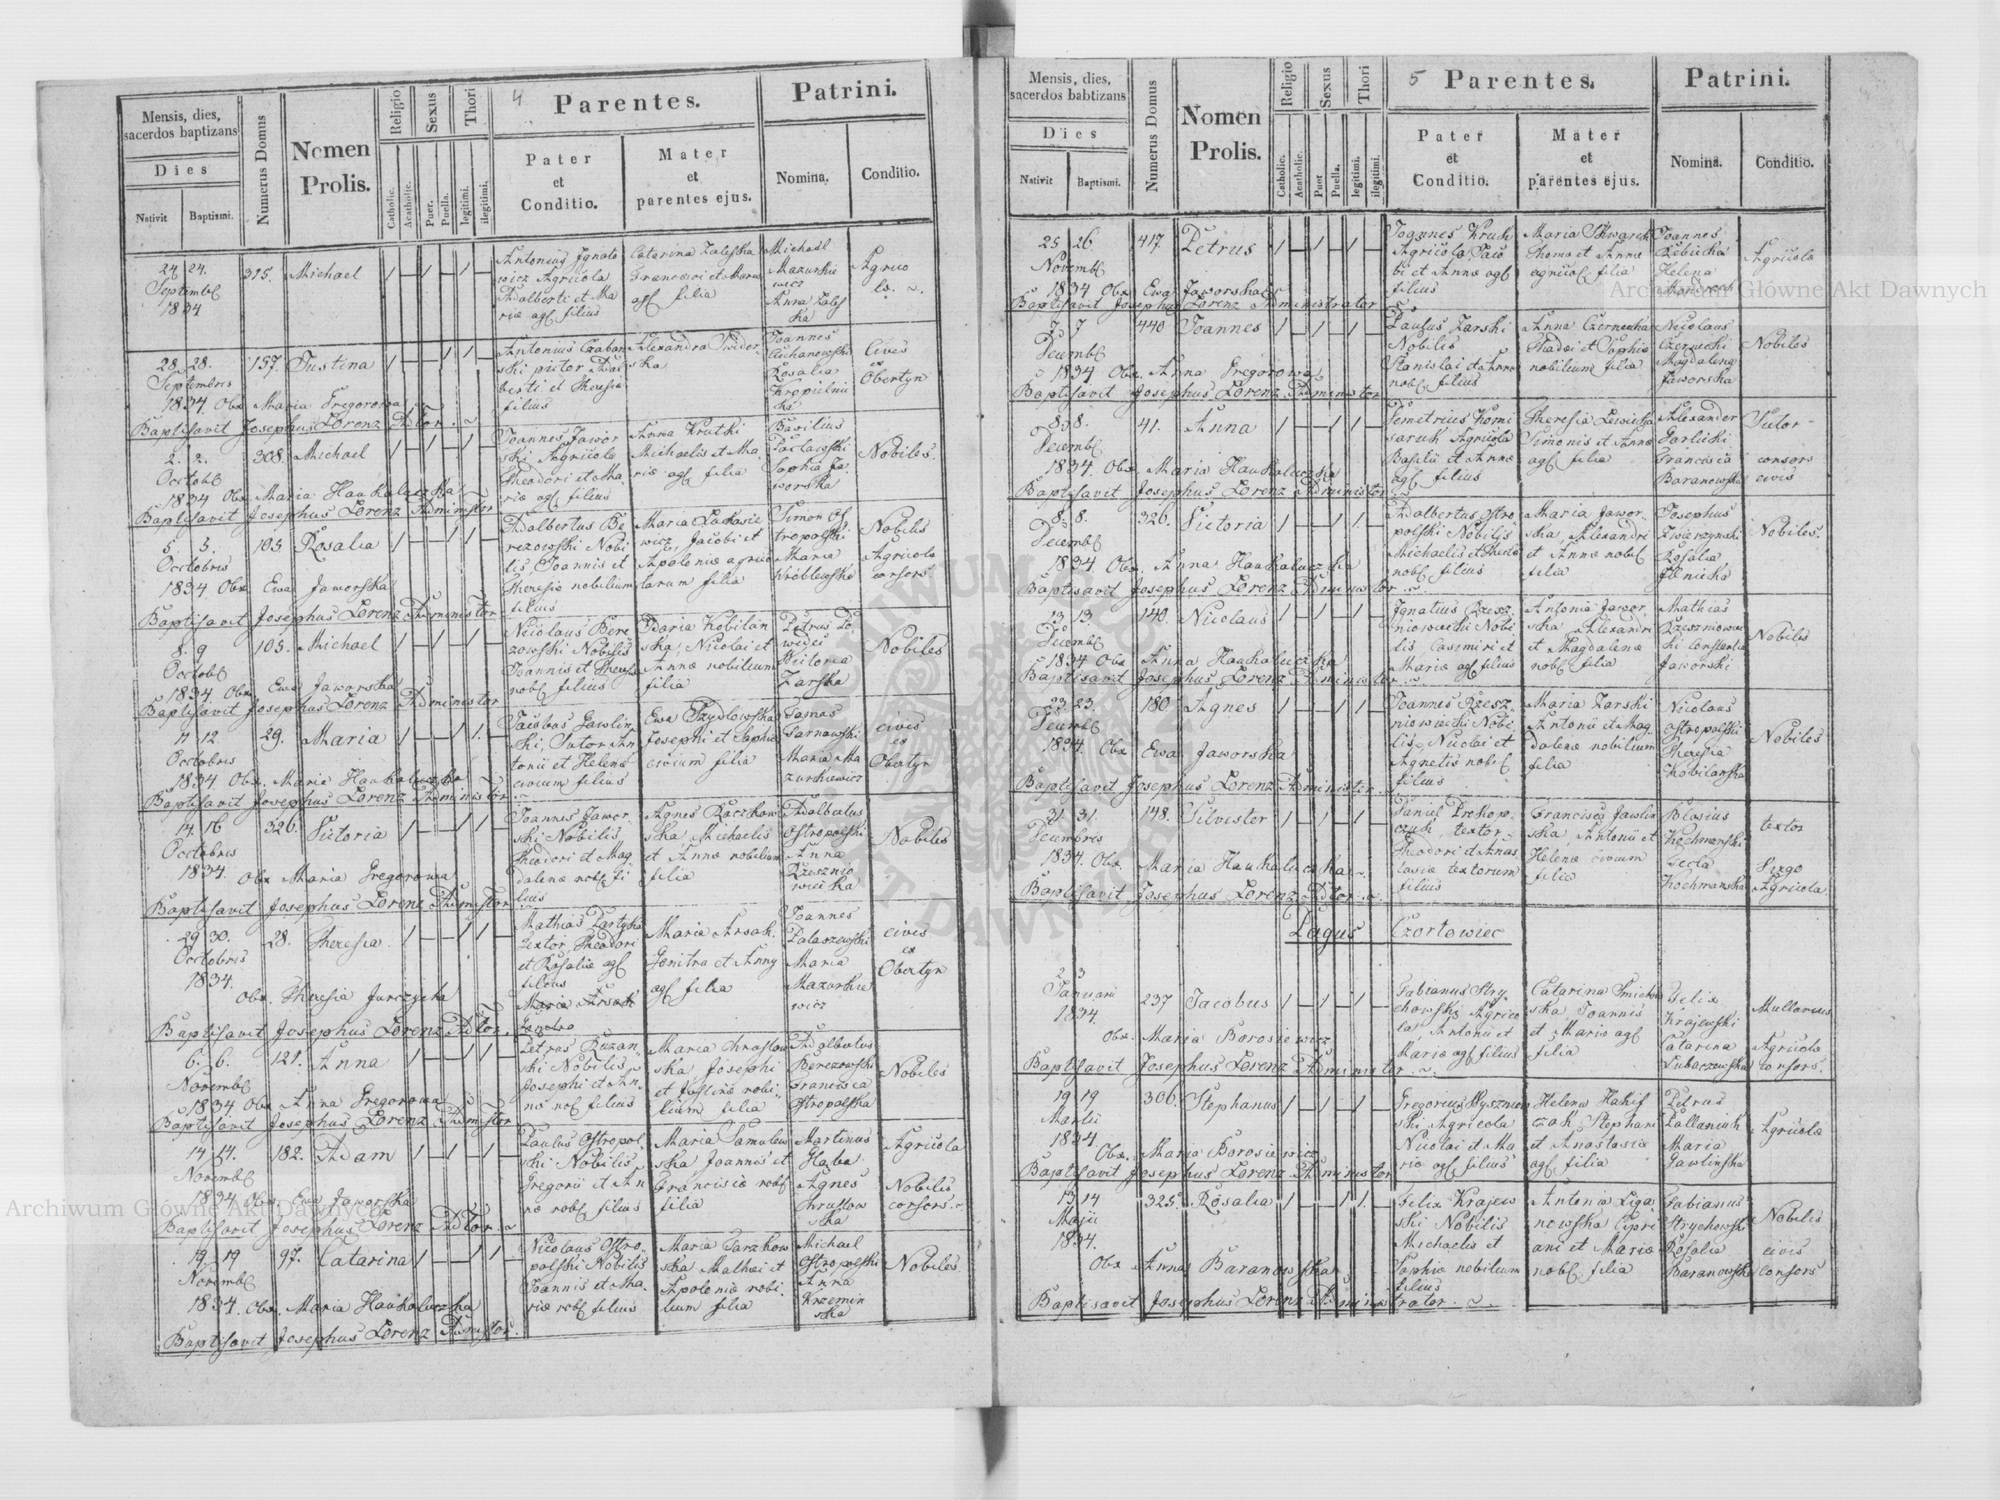 4
Mensis, dies,
sacerdos baptizans
Dies
Nativit
Baptismi.
Numerus Domus
Nomen
Prolis.
Religio
Catholic.
Acatholic.
Sexus
Puer.
Puella.
Thori
legitimi.
ilegitimi.
Parentes.
Pater
et
Conditio.
Mater
et
parentes ejus.
Patrini.
Nomina.
Conditio.
24. 24.
Septembr
1834
315.
Michael
Antonius Ignato
wicz Agricola
Adalberti et Ma
riæ agl filius
Catarina Zaleska
Francisci et Maria
agl filia
Michael
Mazurkie
wicz
Anna Zales
ka
Agrico
la.
28. 28.
Septembris
1834. Obx Maria Gregorowa
Baptisavit Josephus Lorenz Adtor
157.
Justina
Antonius Czaban
ski pictor Adal
berti et Theresia
filius
Alexandra Swider
ska
Joannes
Ciechanowski
Rosalia
Kropielnic
ka
Cives
ex
Obertyn
2. 2.
Octobr
1834 Obx Maria Haukaluczka
Baptisavit Josephus Lorenz Administr
308.
Michael
Joannes Jawor
ski Agricola
Theodori et Ma
riæ agl filius
Anna Krutki
Michaelis et Ma
riæ agl filia
Basilius
Pactawski
Sophia Ja
worska
Nobiles.
5. 5.
Octobris
1834 Obx Ewa Jaworska
Baptisavit Josephus Lorenz Administor
105
Rosalia
Adalbertus Be
rezowski Nobi
lis Joannis et
Theresiæ nobilium
filius
Maria Lukasie
wicz, Jacobi et
Apoloniæ agrico
larum filia
Simon Os
tropolski
Maria
Wróblewska
Nobilis
Agricola
consors
8. 9
Octobr
1834 Obx Ewa Jaworska
Baptisavit Josephus Lorenz Administor
105.
Michael
Nicolaus Bere
zowski Nobilis
Joannis et Theresiæ
nobl filius
Daria Kobilan
ska, Nicolai et
Annæ nobilium
filia
Petrus
Victoria
Zarska
Nobiles
11 12.
Octobris
1834 Obx. Maria Haukaluczka
Baptisavit Josephus Lorenz Administor
29.
Maria
Jacobus Gawlin
ski, Sutor An
tonii et Helenæ
civium filius
Ewa Szydlowska
Josephi et Sophiæ
civium filia
Tomas
Tarnawski
Maria Ma
zurkiewicz
cives
ex
Obertyn
14 16
Octobris
1834. Obx Maria Gregorowa
Baptisavit Josephus Lorenz Admistor
326.
Victoria
Joannes Jawor
ski Nobilis
Theodori et Mag
dalenæ nobl fi
lius
Agnes Raczkow
ska, Michaelis
et Annæ nobilium
filia
Adalbertus
Ostropolski
Anna
Rzesznio
wiecka
Nobiles
29 30.
Octobris
1834.
Obx. Theresia Jurczycka
Baptisavit Josephus Lorenz Adtor
28.
Theresia
Mathias Partyka
textor, Theodori
et Rosaliæ agl
filius
Maria Arsak
Maria Arsak
Genitra et Anny
agl filia
Joannes
Palaszewski
Maria
Mazurkie
wicz
cives
ex
Obertyn
6. 6.
Novembr
1834 Obx Anna Gregorowa
Baptisavit Josephus Lorenz Admistor
121.
Anna
Petrus Buzan
ski Nobilis
Josephi et An
næ nol filius
Maria Chrostow
ska Josephi
et Justinæ nobi
lium filia
Adalbertus
Berezowski
Francisca
Ostropolska
Nobiles
14 14.
Novembr
1834 Obx. Ewa Jaworska
Baptisavit Josephus Lorenz Adtor
182.
Adam
Paulus Ostropol
ski Nobilis
Gregorii et An
næ nobl filius
Maria Samulew
ska Joannis et
Francisciæ nobl
filia
Martinus
Agnes
Chrustow
ska
Agricola
Nobilis
consors
19 19
Novembr
1834. Obx. Maria Haukaluczka
Baptisavit Josephus Lorenz Admistor.
97.
Catarina
Nicolaus Ostro
polski Nobilis
Joannis et Ma
riæ nobl filius
Maria Tarzkow
ska Mathei et
Apoloniæ nobi
lium filia
Michael
Ostropolski
Anna
Krzemin
ska
Nobiles.
5
Mensis, dies,
sacerdos babtizans
Dies
Nativit
Baptismi.
Numerus Domus
Nomen
Prolis.
Religio
Catholic.
Acatholic.
Sexus
Puer
Puella.
Thori
legitimi.
ilegitimi.
Parentes.
Pater
et
Conditio.
Mater
et
parentes ejus.
Patrini.
Nomina.
Conditio.
25 26
Novembr
1834 Obx Ewa Jaworska
Baptisavit Josephus Lorenz Administrator
417
Petrus
Joannes Kruk
Agricola Jaco
bi et Annæ agl
filius
Maria Skwarek
Thoma et Annæ
agricol filia
Joannes
Helena
Agricola
7 7
Decembr
1834 Obx. Anna Gregorowa
Baptisavit Josephus Lorenz Administor
440
Joannes
Paulus Zarski
Nobilis
Stanislai et Annæ
nobl filius
Anna Czernecka
Thadei et Sophiæ
nobilium filia
Nicolaus
Czernecki
Magdalena
Jaworska
Nobiles
8. 8.
Decembr
1834. Obx. Maria Haukaluczka
Baptisavit Josephus Lorenz Administor
41.
Anna
Demetrius Komi
saruk Agricola
Basilii et Annæ
agl filius
Theresia Lewicka
Simonis et Annæ
agl filia
Alexander
Garlicki
Francisca
Baranowska
Sutor
consors
civis
8. 8.
Decembr
1834 Obx. Anna Haukaluczka
Baptisavit Josephus Lorenz Administor
326.
Victoria
Adalbertus Ostro
polski Nobilis
Michaelis et Theresiæ
nobl filius
Maria Jawor
ska, Alexandri
et Annæ nobl
filia
Josephus
Zwierzynski
Rosalia
Ilnicka
Nobiles.
13 13.
Decembr
1834 Obx Anna Haukaluczka
Baptisavit Josephus Lorenz Administor
149.
Nicolaus
Ignatius Rzesz
niowiecki Nobi
lis Casimiri et
Mariæ agl filius
Antonia Jawor
ska, Alexandri
et Magdalenæ
nobl filia
Mathias
Rzeszniowiec
ki Constantia
Jaworski
Nobiles
23 23.
Decembr
1834. Obx Ewa Jaworska
Baptisavit Josephus Lorenz Administor
180
Agnes
Joannes Rzesz
niowiecki Nobi
lis, Nicolai et
Agnetis nobl
filius
Maria Zarski
Antonii et Mag
dalenæ nobilium
filia
Nicolaus
Ostropolski
Theresia
Kobilanska
Nobiles
31 31.
Decembris
1834. Obx Maria Haukaluczka
Baptisavit Josephus Lorenz Adtor
148.
Silvester
Daniel Prokop
czuk, textor
Theodori et Anas
tasiæ textorum
filius
Francisca Gawlin
ska, Antonii et
Helenæ civium
filia
Blasius
Kochmanski
Tecla
Kochmanska
textor
Virgo
Agricola
Pagus Czortowiec
2 3
Januarii
1834.
Obx. Maria Borosiewicz
Baptisavit Josephus Lorenz Administor
237
Jacobus
Fabianus Stry
chowski Agrico
la, Antonii et
Mariæ agl filius
Catarina Smichow
ska, Joannis
et Mariæ agl
filia
Felix
Krajewski
Catarina
Lubaczewska
Agricola
consors.
19 19
Martii
1834
Obx. Maria Borosiewicz
Baptisavit Josephus Lorenz Administor
306.
Stephanus
Gregorius Wysznow
ski Agricola
Nicolai et Ma
riæ agl filius
Helena Hakif
czak Stephani
et Anastasiæ
agl filia
Petrus
Pallaniuk
Maria
Gawlinska
Agricola
13 14
Maji
1834.
Obx Anna Baranowska
Baptisavit Josephus Lorenz Administrator
325.
Rosalia
Felix Krajew
ski Nobilis
Michaelis et
Sophiæ nobilium
filius
Antonia Liga
nowska Cypri
ani et Mariæ
nobl filia
Fabianus
Strychowski
Rosalia
Baranowska
Nobilis
civis
consors
Archiwum Główne Akt Dawnych
Archiwum Główne Akt Dawnych